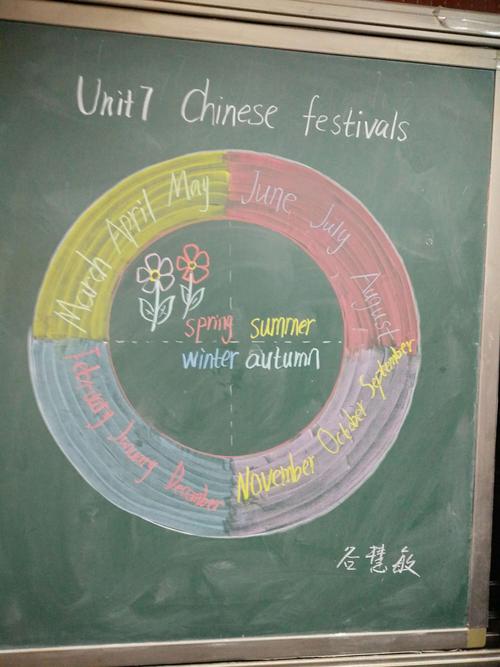 Unit 7 Chinese festivals
March April May
June July August
spring summer
winter autumn
February January December
November October September
谷慧敏